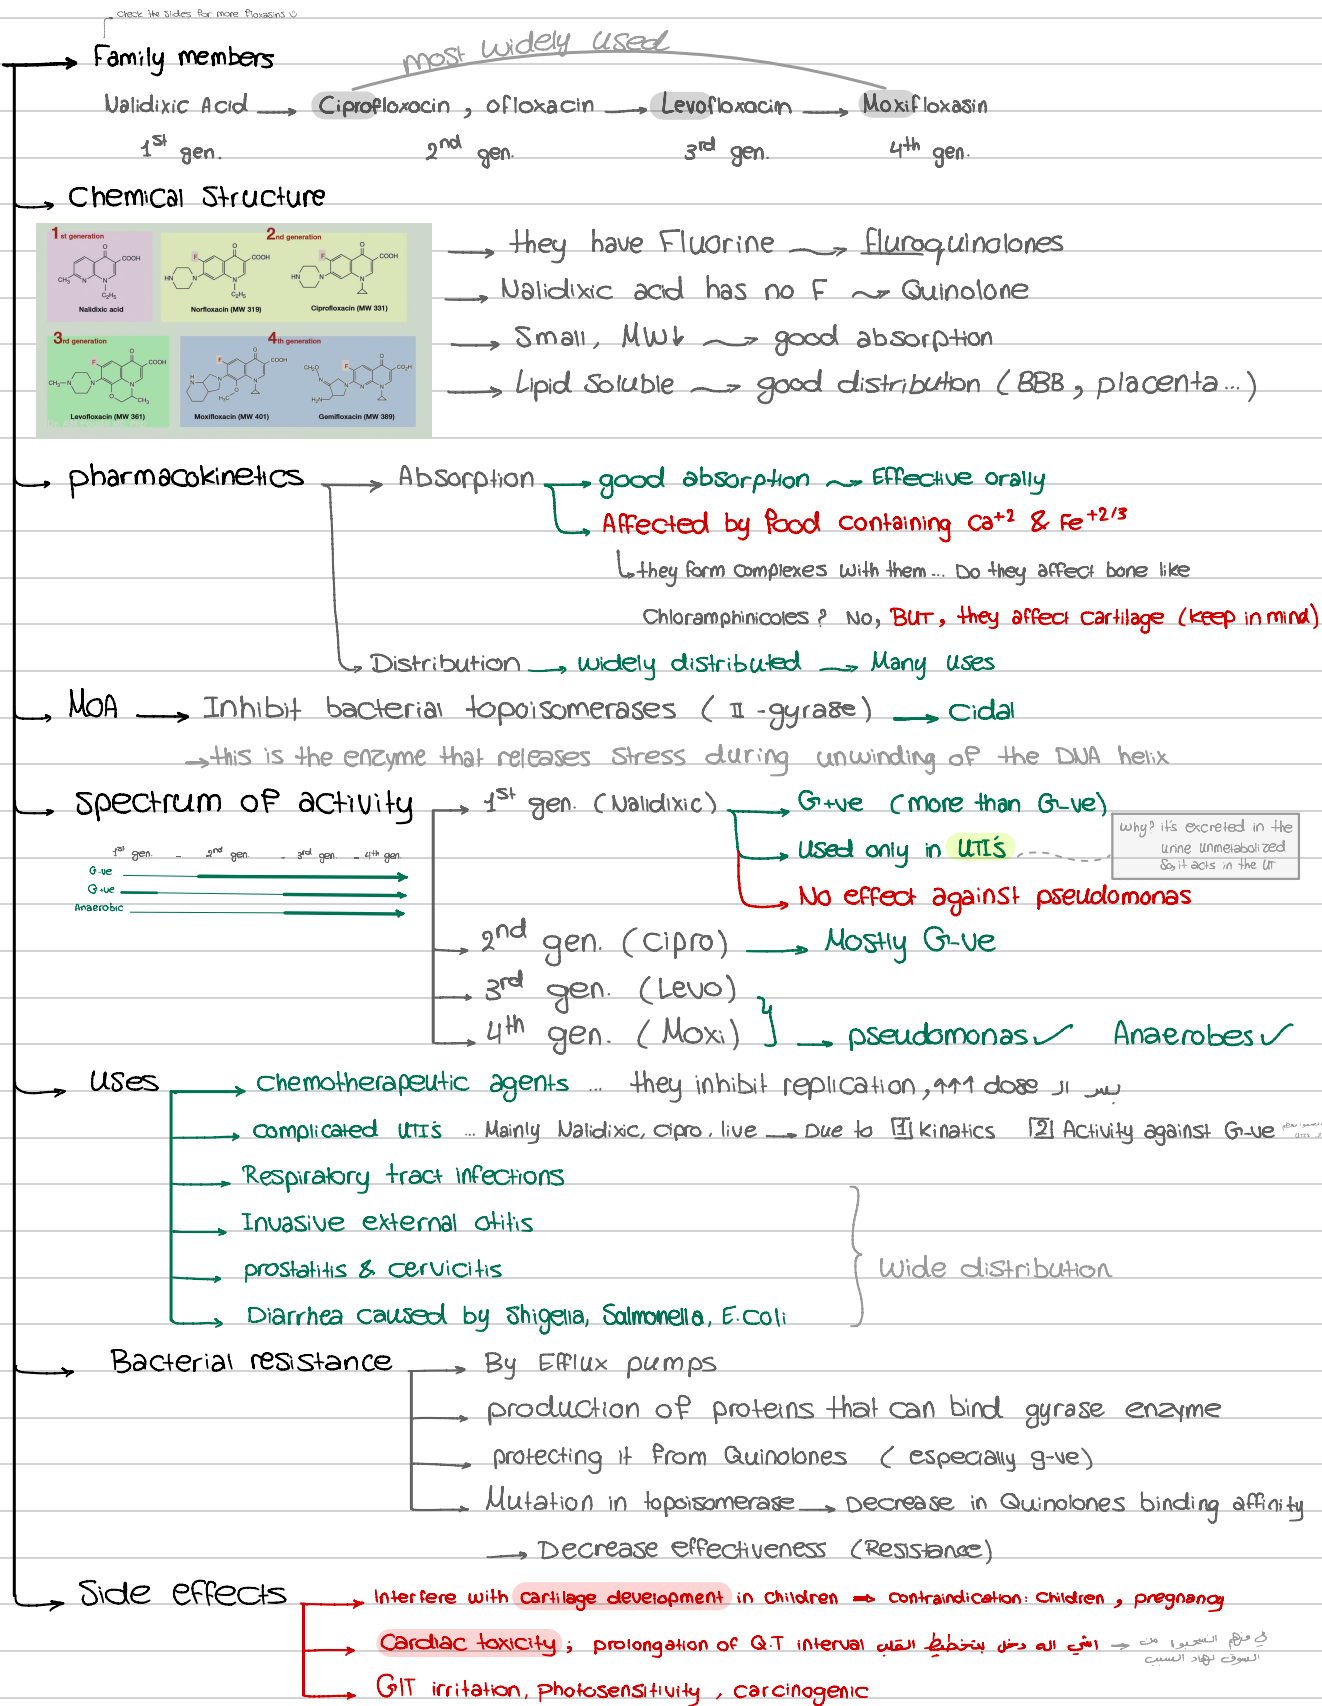 check the slides for more floxasins
Family members
most widely used
Nalidixic Acid → Ciprofloxocin , ofloxacin → Levofloxacin → Moxifloxasin
1st gen. 2nd gen. 3rd gen. 4th gen.
Chemical Structure
1st generation 2nd generation
COOH
CH₃
N
C₂H₅
Nalidixic acid
F
COOH
HN
C₂H₅
Norfloxacin (MW 319)
F
COOH
HN
Ciprofloxacin (MW 331)
3rd generation 4th generation
F
COOH
CH₃
CH₃
Levofloxacin (MW 361)
F
COOH
Moxifloxacin (MW 401)
CH₃O
F
H₂N
Gemifloxacin (MW 389)
→ they have Fluorine → fluroquinolones
→ Nalidixic acid has no F → Quinolone
→ Small, MW↓ → good absorption
→ Lipid Soluble → good distribution (BBB, placenta...)
pharmacokinetics → Absorption → good absorption → Effective orally
Affected by food containing Ca+2 & Fe+2/3
they form complexes with them... Do they affect bone like
Chloramphinicoles? No, BUT, they affect cartilage (keep in mind)
Distribution → widely distributed → Many uses
MOA → Inhibit bacterial topoisomerases (II-gyrase) → Cidal
→ this is the enzyme that releases stress during unwinding of the DNA helix
Spectrum of activity → 1st gen. (Nalidixic) → G+ve (more than G-ve)
why? it's excreted in the
urine unmetabolized
So, it acts in the UT
Used only in UTI's
No effect against pseudomonas
1st gen. - 2nd gen. - 3rd gen. - 4th gen.
G-ve
G+ve
Anaerobic
2nd gen. (Cipro) → Mostly G-ve
3rd gen. (Levo)
4th gen. (Moxi) → pseudomonas✓ Anaerobes✓
Uses → chemotherapeutic agents ... they inhibit replication, ↑↑↑ dose بس ال
complicated UTI's ... Mainly Nalidixic, cipro, live → Due to 1 Kinatics 2 Activity against G-ve
Respiratory tract infections
Invasive external otitis
prostatitis & cervicitis
Wide distribution
Diarrhea caused by Shigella, Salmonella, E.coli
Bacterial resistance → By Efflux pumps
production of proteins that can bind gyrase enzyme
protecting it from Quinolones (especially g-ve)
Mutation in topoisomerase → Decrease in Quinolones binding affinity
→ Decrease effectiveness (Resistance)
Side effects → Interfere with cartilage development in children → contraindication: Children, pregnancy
Cardiac toxicity; prolongation of Q.T interval اشي اله دخل بتخطيط القلب → في منهم انسحبوا من
السوق لهاد السبب
GIT irritation, photosensitivity, carcinogenic